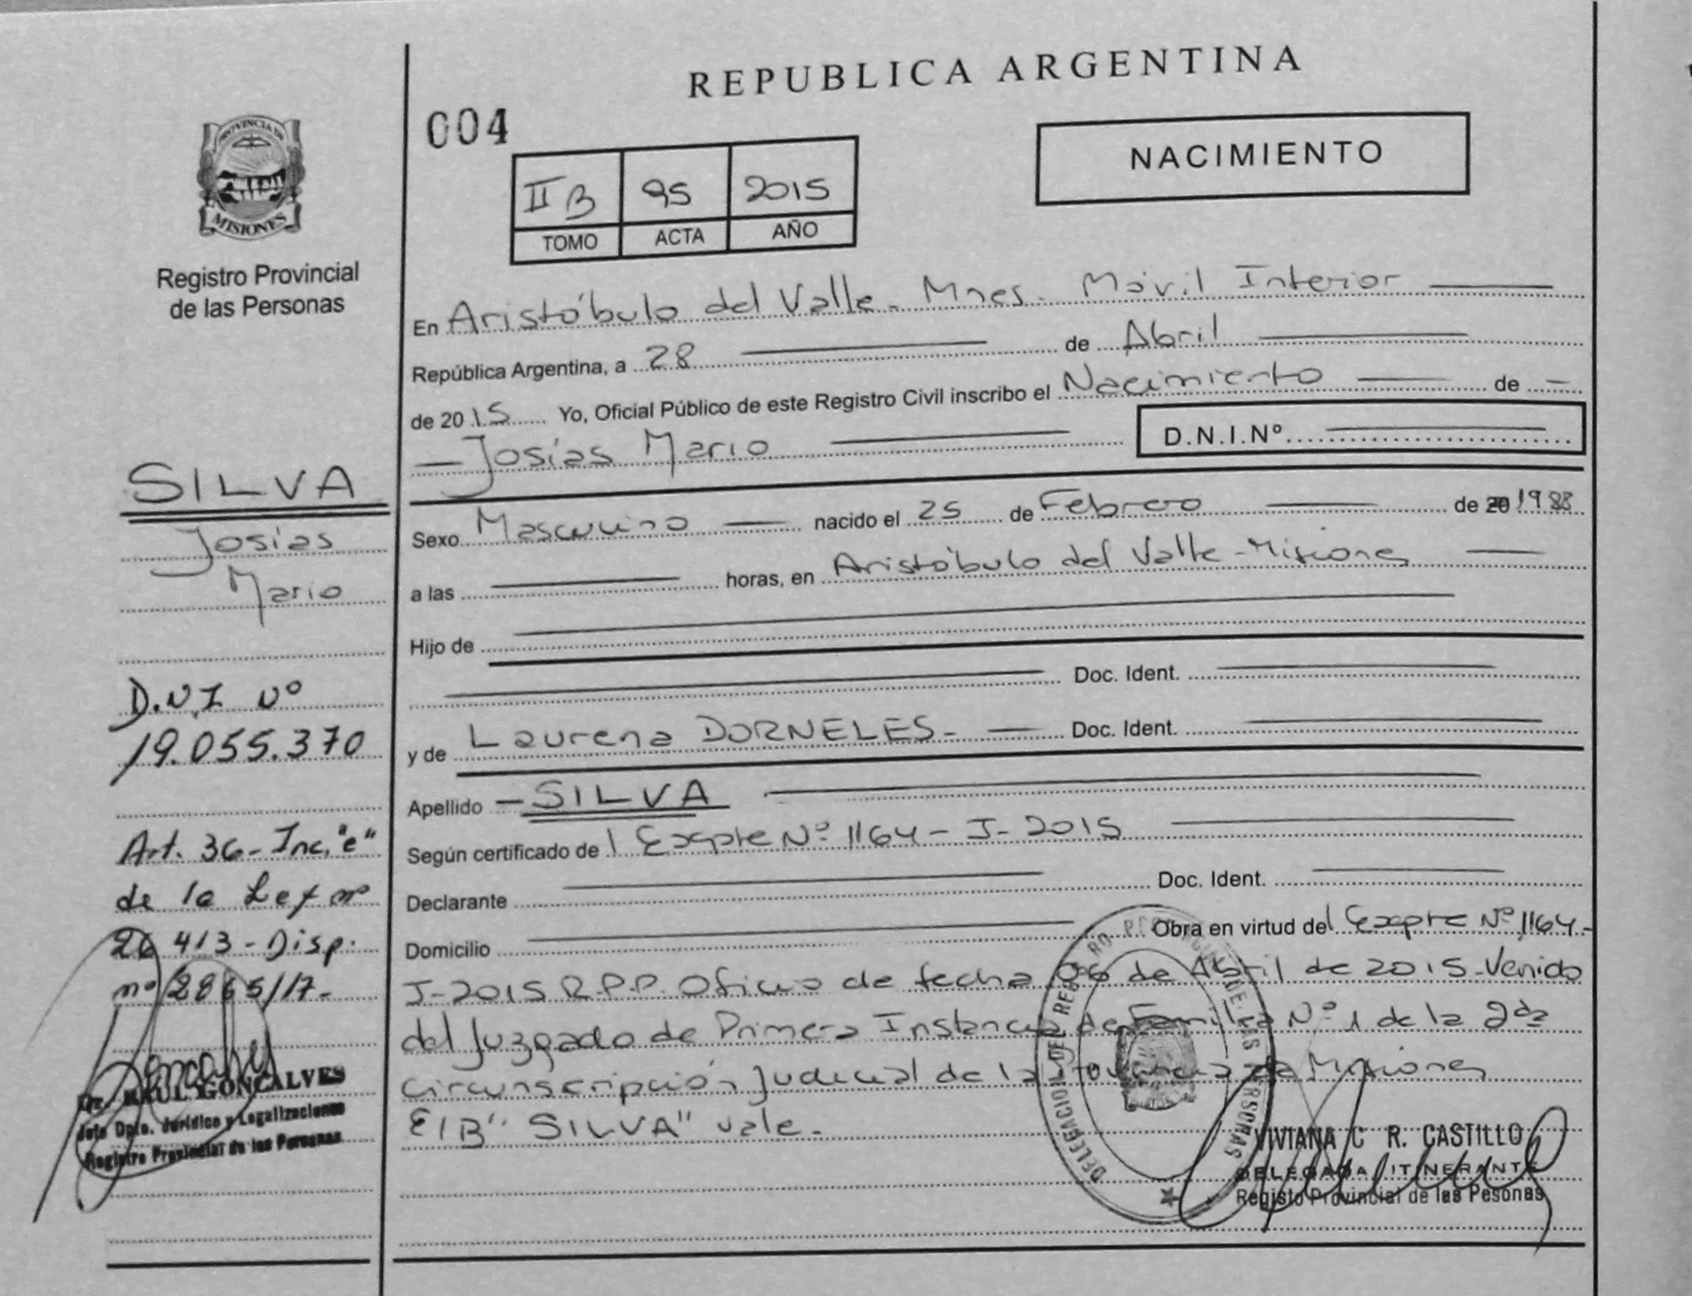 REPUBLICA ARGENTINA
004
NACIMIENTO
II B 95 2015
TOMO ACTA AÑO
PROVINCIA DE
MISIONES
Registro Provincial
de las Personas
En Aristóbulo del Valle - Mnes - Móvil Interior
República Argentina, a 28 de Abril
de 2015 Yo, Oficial Público de este Registro Civil inscribo el Nacimiento de -
Josías Mario D.N.I.Nº
Sexo Masculino nacido el 25 de Febrero de 20 1988
a las horas, en Aristóbulo del Valle - Misiones
Hijo de
Doc. Ident.
y de Laurena DORNELES - Doc. Ident.
Apellido - SILVA
Según certificado de l Expte Nº 1164 - J - 2015
Declarante Doc. Ident.
Domicilio Obra en virtud del Expte Nº 1164 -
J-2015 R.P.P. Oficio de fecha 06 de Abril de 2015 - Venido
del Juzgado de Primera Instancia de Familia Nº 1 de la 2da
circunscripción Judicial de la Provincia de Misiones
E/B" SILVA" vale.
SILVA
Josías
Mario
D.N.I Nº
19.055.370
Art. 36 - Inc. "e"
de la Ley nº
26 413 - Disp.
nº 2865/17 -
Dr. RAUL GONCALVES
Jefe Dpto. Jurídico y Legalizaciones
Registro Provincial de las Personas
VIVIANA C R. CASTILLO
DELEGADA ITINERANTE
Registo Provincial de las Pesonas